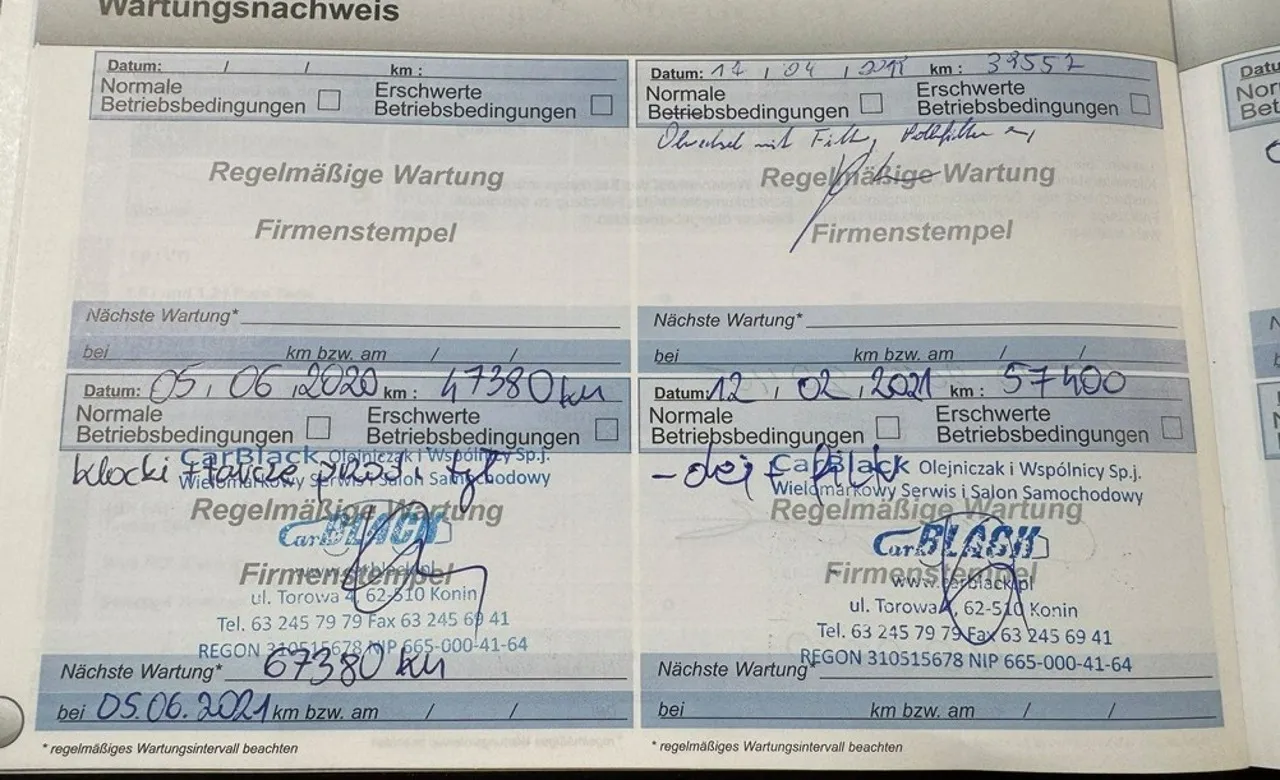 Wartungsnachweis
Datum: / / km :
Normale Betriebsbedingungen
Erschwerte Betriebsbedingungen
Regelmäßige Wartung
Firmenstempel
Nächste Wartung*
bei km bzw. am / /
Datum: 17 / 04 / 2018 km : 39557
Normale Betriebsbedingungen
Erschwerte Betriebsbedingungen
Ölwechsel mit Filter, Pollfilter
Regelmäßige Wartung
Firmenstempel
Nächste Wartung*
bei km bzw. am / /
Datum: 05, 06, 2020 km : 47380 km
Normale Betriebsbedingungen
Erschwerte Betriebsbedingungen
CarBlack Olejniczak i Wspólnicy Sp.j.
klocki + tarcze przód i tył
Wielomarkowy Serwis i Salon Samochodowy
Regelmäßige Wartung
CarBLACK
Firmenstempel
www.carblack.pl
ul. Torowa 4, 62-510 Konin
Tel. 63 245 79 79 Fax 63 245 69 41
REGON 310515678 NIP 665-000-41-64
Nächste Wartung* 67380 km
bei 05.06.2021 km bzw. am / /
* regelmäßiges Wartungsintervall beachten
Datum: 12 / 02, 2021 km : 57400
Normale Betriebsbedingungen
Erschwerte Betriebsbedingungen
- olej + filtr
CarBlack Olejniczak i Wspólnicy Sp.j.
Wielomarkowy Serwis i Salon Samochodowy
Regelmäßige Wartung
CarBLACK
Firmenstempel
www.carblack.pl
ul. Torowa 4, 62-510 Konin
Tel. 63 245 79 79 Fax 63 245 69 41
REGON 310515678 NIP 665-000-41-64
Nächste Wartung*
bei km bzw. am / /
* regelmäßiges Wartungsintervall beachten